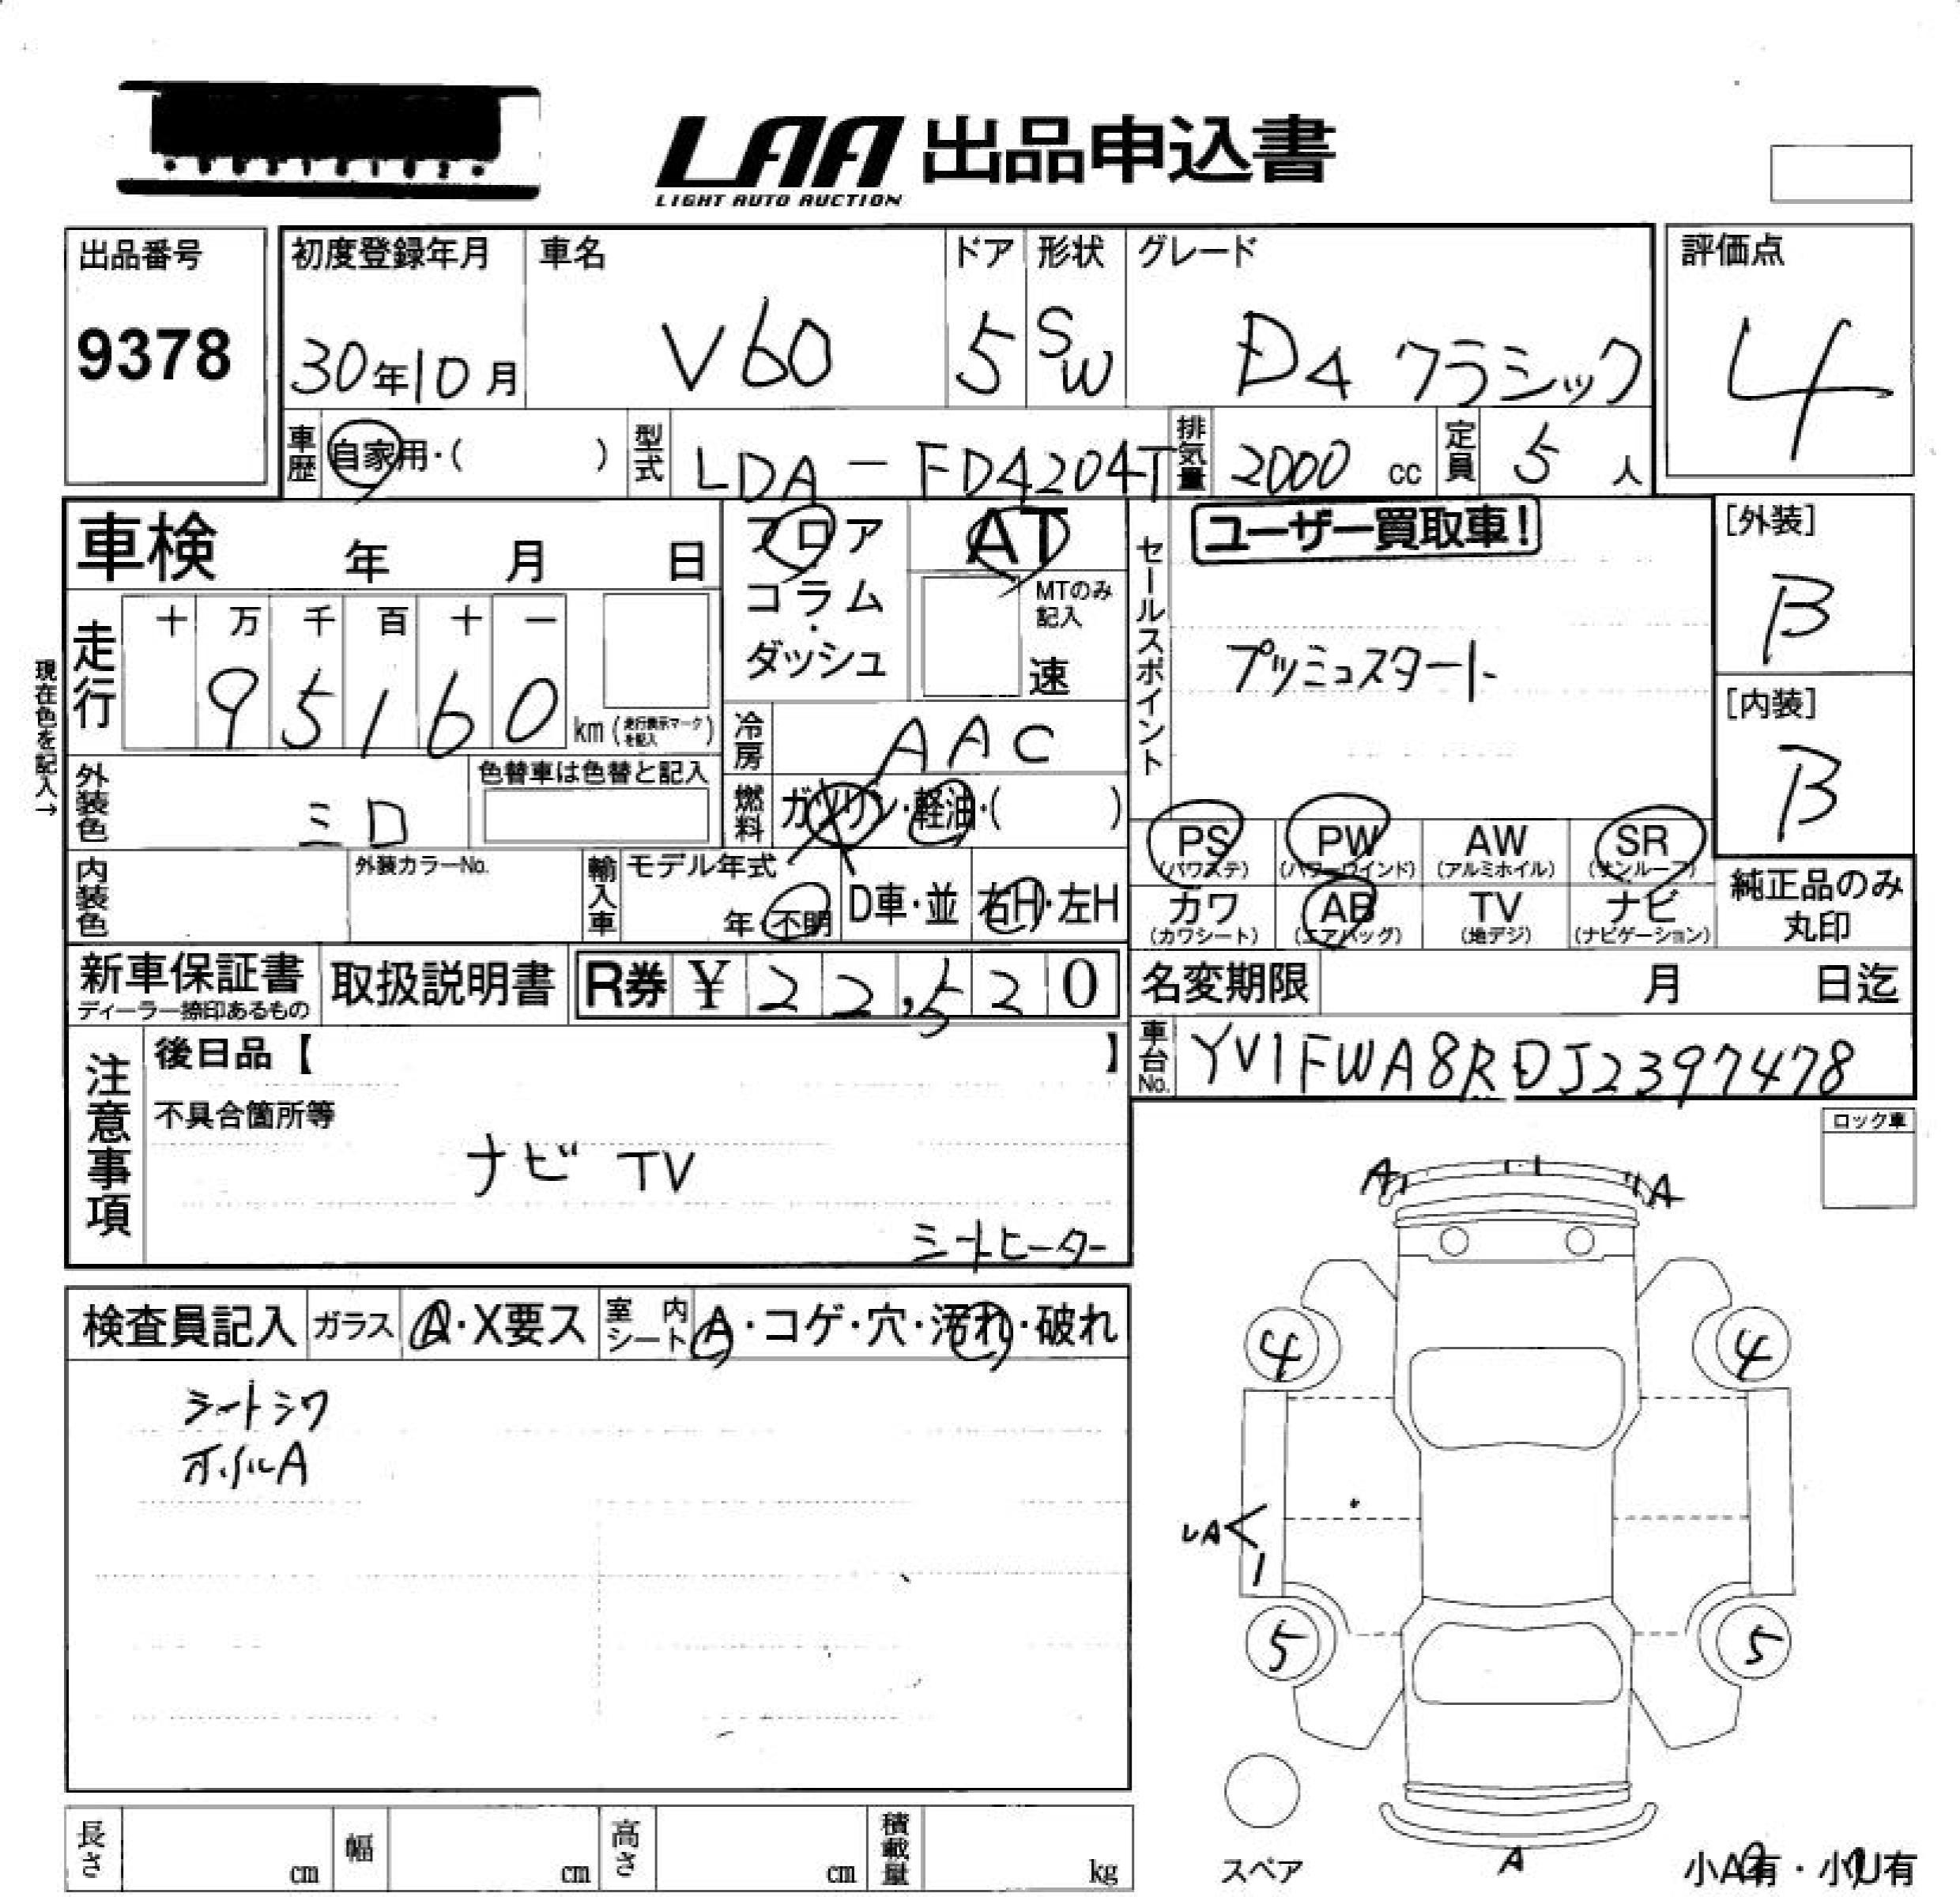 LAA 出品申込書
LIGHT AUTO AUCTION
出品番号
9378
初度登録年月
30年10月
車名
V60
ドア
5
形状
SW
グレード
D4 クラシック
評価点
4
車歴
自家用・( )
型式
LDA-FD4204T
排気量
2000 cc
定員
5 人
車検 年 月 日
フロア
コラム
・
ダッシュ
AT
MTのみ
記入
速
セールスポイント
ユーザー買取車!
プッシュスタート
[外装]
B
[内装]
B
現在色を記入→
走行
十 万 千 百 十 一
9 5 1 6 0
km (走行表示マークを記入)
冷房
AAC
外装色
ミロ
色替車は色替と記入
燃料
ガソリン・軽油・( )
PS
(パワステ)
PW
(パワーウインド)
AW
(アルミホイル)
SR
(サンルーフ)
カワ
(カワシート)
AB
(エアバッグ)
TV
(地デジ)
ナビ
(ナビゲーション)
純正品のみ
丸印
内装色
外装カラーNo.
輸入車
モデル年式
年・不明
D車・並
右H・左H
新車保証書
ディーラー捺印あるもの
取扱説明書
R券 ¥ 22,520
名変期限 月 日迄
車台No.
YV1FWA8RDJ2397478
注意事項
後日品【 】
不具合箇所等
ナビ TV
シートヒーター
ロック車
検査員記入
ガラス
A・X要ス
室内シート
A・コゲ・穴・汚れ・破れ
シートシワ
ホイルA
A
A
4
4
レA
5
5
スペア
A
小A有・小U有
長さ cm
幅 cm
高さ cm
積載量 kg